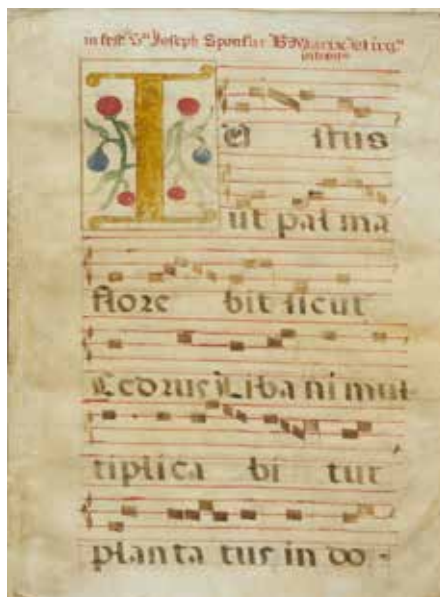 in fest. Sti Joseph Sponsi B Mariæ
IU stus
ut pal ma
flore bit sicut
Cedrus Liba ni mul
tiplica bi tur
planta tus in do-